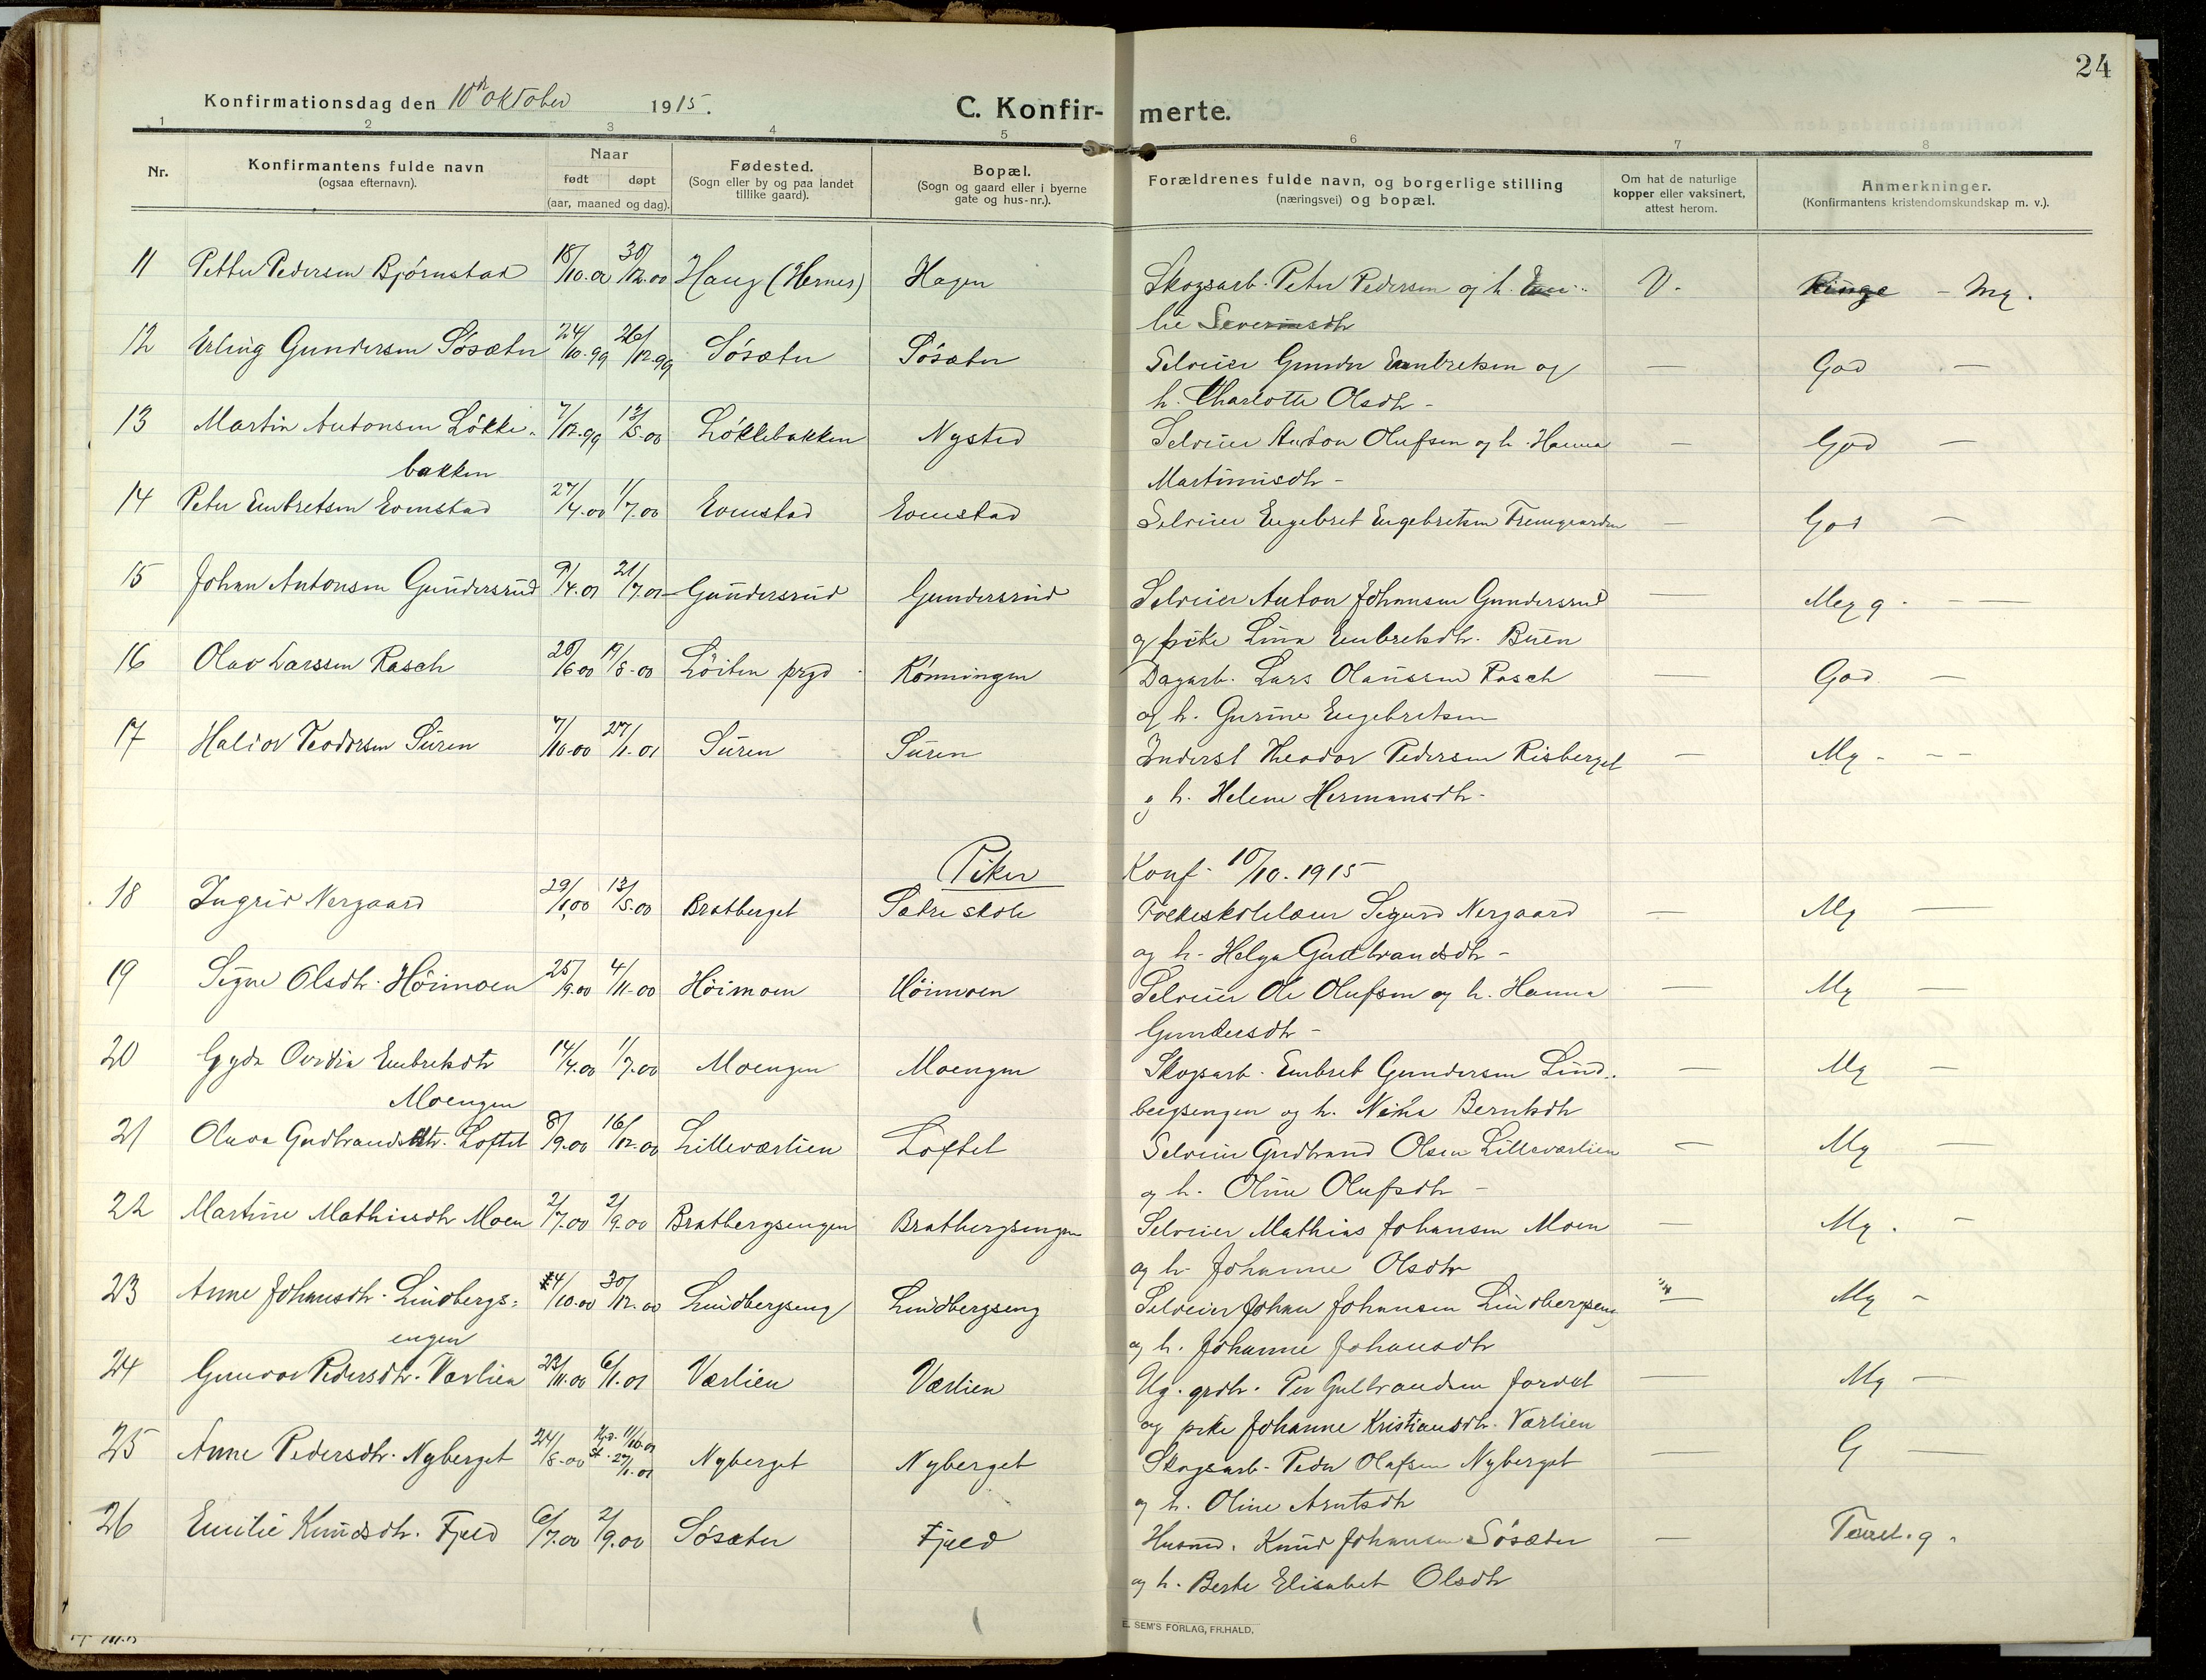 24
Konfirmationsdag den 10de oktober 1915.
C. Konfir- merte.
1 2 3 4 5 6 7 8
Nr.
Konfirmantens fulde navn
(ogsaa efternavn).
Naar
født døpt
(aar, maaned og dag).
Fødested.
(Sogn eller by og paa landet
tillike gaard).
Bopæl.
(Sogn og gaard eller i byerne
gate og hus-nr.).
Forældrenes fulde navn, og borgerlige stilling
(næringsvei) og bopæl.
Om hat de naturlige
kopper eller vaksinert,
attest herom.
Anmerkninger.
(Konfirmantens kristendomskundskap m. v.).
11 Petter Pedersen Bjørnstad 18/10.00 30/12.00 Haug (Hernes) Hagen Skogsarb. Peter Pedersen og h. V. - Mg.
lie Severinsdtr
12 Erling Gundersen Søsæter 24/10.99 26/12.99 Søsæter Søsæter Selveier Gunder Embretsen og — God —
h. Charlotte Olsdtr -
13 Martin Antonsen Løkke- 7/12.99 13/5.00 Løkkebakken Nysted Selveier Anton Olufsen og h. Hanna — God —
bakken Martinusdtr -
14 Peter Embretsen Evenstad 27/4.00 1/7.00 Evenstad Evenstad Selveier Engebret Engebretsen Fremgaarden — God —
15 Johan Antonsen Gundersrud 9/4.01 21/7.01 Gundersrud Gundersrud Selveier Anton Johansen Gundersrud — Meg g. - —
og pike Lina Embretsdtr. Buen
16 Olav Larssen Rasch 28/6.00 19/8-00 Löiten prgd. Rønningen Dagarb. Lars Olaussen Rasch — God —
og h. Gurine Engebretsen
17 Halvor Teodorsen Suren 7/10-00 27/1.01 Suren Suren Inderst Theodor Pedersen Risberget — Mg - - -
og h. Helene Hermansdtr -
Piker Konf. 10/10. 1915
18 Ingrid Nergaard 29/1.00 13/5.00 Bratberget Sætre skole Folkeskolelærer Sigurd Nergaard — Mg —
og h. Helga Gudbrandsdtr -
19 Signe Olsdtr. Höimoen 25/9.00 4/11-00 Höimoen Höimoen Selveier Ole Olufsen og h. Hanna — Mg —
Gundersdtr -
20 Gyda Ovidia Embretsdtr 14/4.00 1/7.00 Moengen Moengen Skogsarb. Embret Gundersen Lind- — Mg —
Moengen bergsengen og h. Berntsdtr
21 Olava Gudbrandsdtr. Loftet 8/9.00 16/12.00 Lilleværlien Loftet Selveier Gudbrand Olsen Lilleværlien — Mg —
og h. Oline Olufsdtr -
22 Martine Mathiasdtr Moen 2/7.00 2/9.00 Bratbergsengen Bratbergsengen Selveier Mathias Johansen Moen — Mg. -
og h. Johanne Olsdtr
23 Anne Johansdtr. Lindbergs- 4/10.00 30/12.00 Lindbergseng Lindbergseng Selveier Johan Johansen Lindbergseng — Mg -
engen og h. Johanne Johansdtr
24 Gunvor Pedersdtr. Værlien 23/11.00 6/1.01 Værlien Værlien Ug. grdbr. Per Gulbrandsen Jordet — Mg —
og pike Johanne Kristiansdtr. Værlien
25 Anne Pedersdtr. Nyberget 24/8-00 Hjd. 11/10.01 St. 27/1.01 Nyberget Nyberget Skogsarb. Peder Olafsen Nyberget — G —
og h. Oline Arntsdtr
26 Emilie Knudsdtr. Fjeld 6/7.00 2/9.00 Søsæter Fjeld Husmd. Knud Johansen Søsæter — Taal. g.
og h. Berte Elisabet Olsdtr
E. SEM'S FORLAG, FR.HALD.